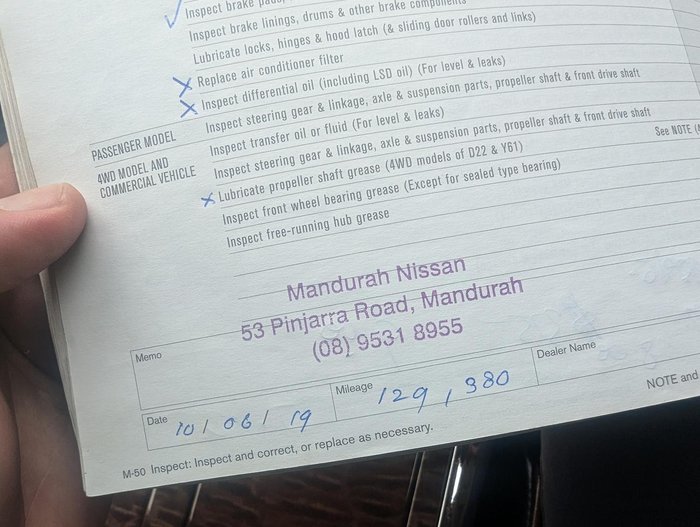 Inspect brake pads,
Inspect brake linings, drums & other brake components
Lubricate locks, hinges & hood latch (& sliding door rollers and links)
Replace air conditioner filter
Inspect differential oil (including LSD oil) (For level & leaks)
PASSENGER MODEL
Inspect steering gear & linkage, axle & suspension parts, propeller shaft & front drive shaft
4WD MODEL AND
COMMERCIAL VEHICLE
Inspect transfer oil or fluid (For level & leaks)
Inspect steering gear & linkage, axle & suspension parts, propeller shaft & front drive shaft
Lubricate propeller shaft grease (4WD models of D22 & Y61)
See NOTE
Inspect front wheel bearing grease (Except for sealed type bearing)
Inspect free-running hub grease
Mandurah Nissan
53 Pinjarra Road, Mandurah
(08) 9531 8955
Memo
Date 10/06/19
Mileage 129,380
Dealer Name
NOTE and
M-50 Inspect: Inspect and correct, or replace as necessary.